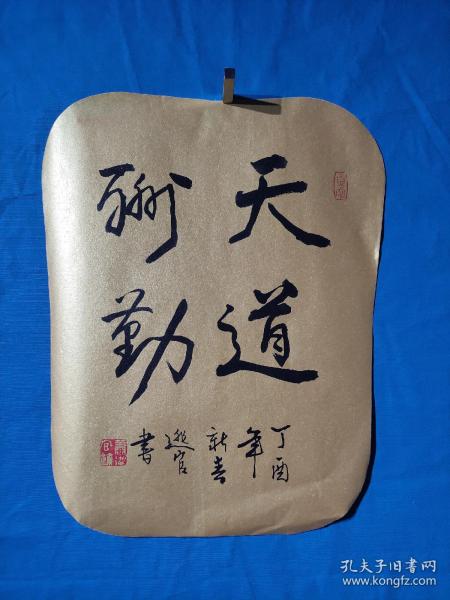 天道
酬勤
丁酉
年
新春
官
書
孔夫子旧书网
www.kongfz.com